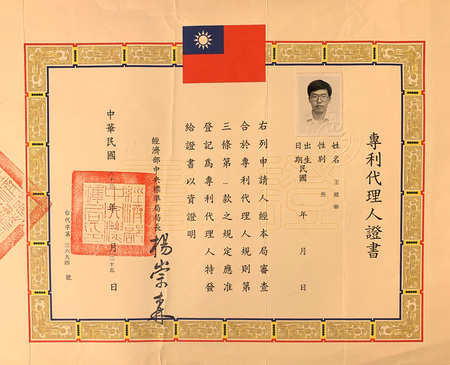 專利代理人證書
姓名 王
性別 男
出生日期 民國 年 月 日
右列申請人經本局審查
合於專利代理人規則第
三條第一款之規定應准
登記為專利代理人特發
給證書以資證明
經濟部中央標準局局長 楊崇森
中華民國 年 月 日
台代字第 三六九四 號